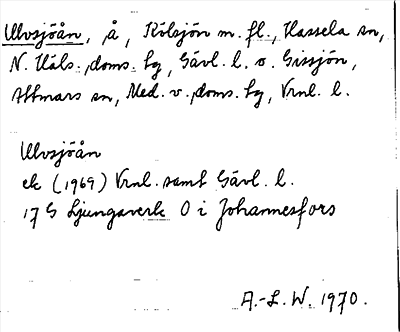 Ulvsjöån, å, Kölsjön m. fl., Hassela sn,
N. Häls. doms. hg, Gävl. l. o. Gissjön,
Attmars sn, Med. v. doms. hg, Vrnl. l.
Ulvsjöån
ek (1969) Vrnl. samt Gävl. l.
17 G Ljungaverk O i Johannesfors
A.-L. W. 1970.